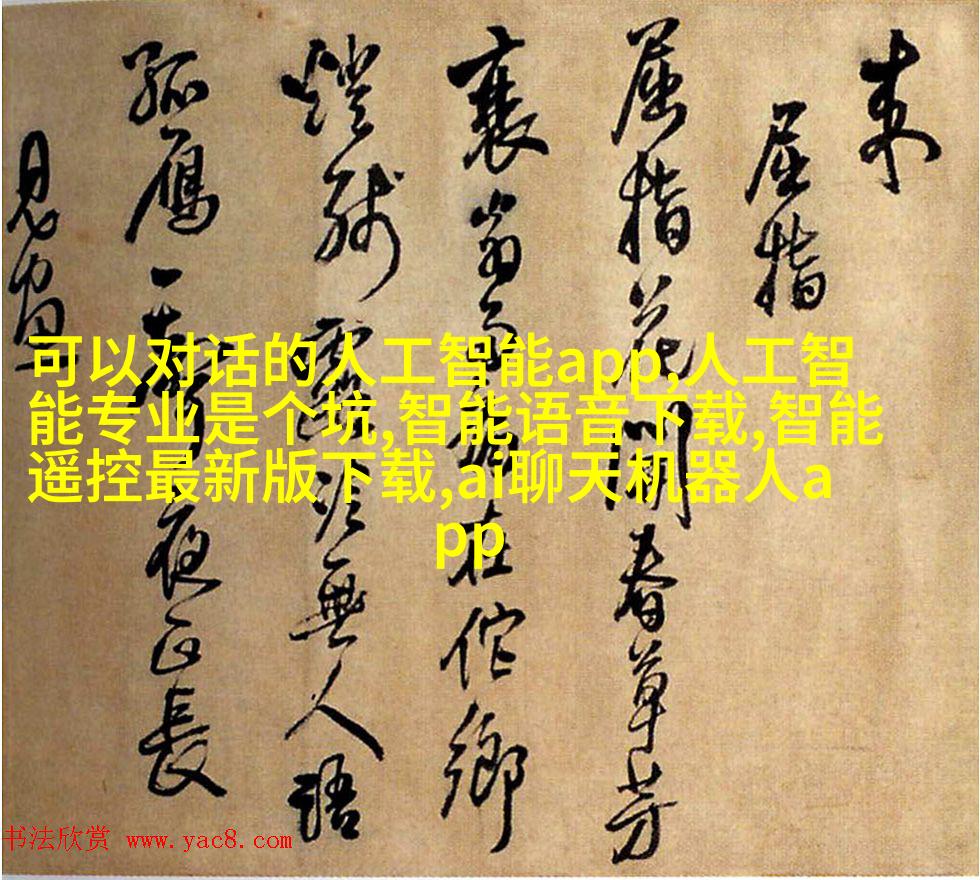 来
屈指
屈指花開春草芳
襄翁又在佗鄉
燈殘無人語
孤雁一夜正長
可以对话的人工智能app,人工智
能专业是个坑,智能语音下载,智能
遥控最新版下载,ai聊天机器人a
pp
书法欣赏 www.yac8.com